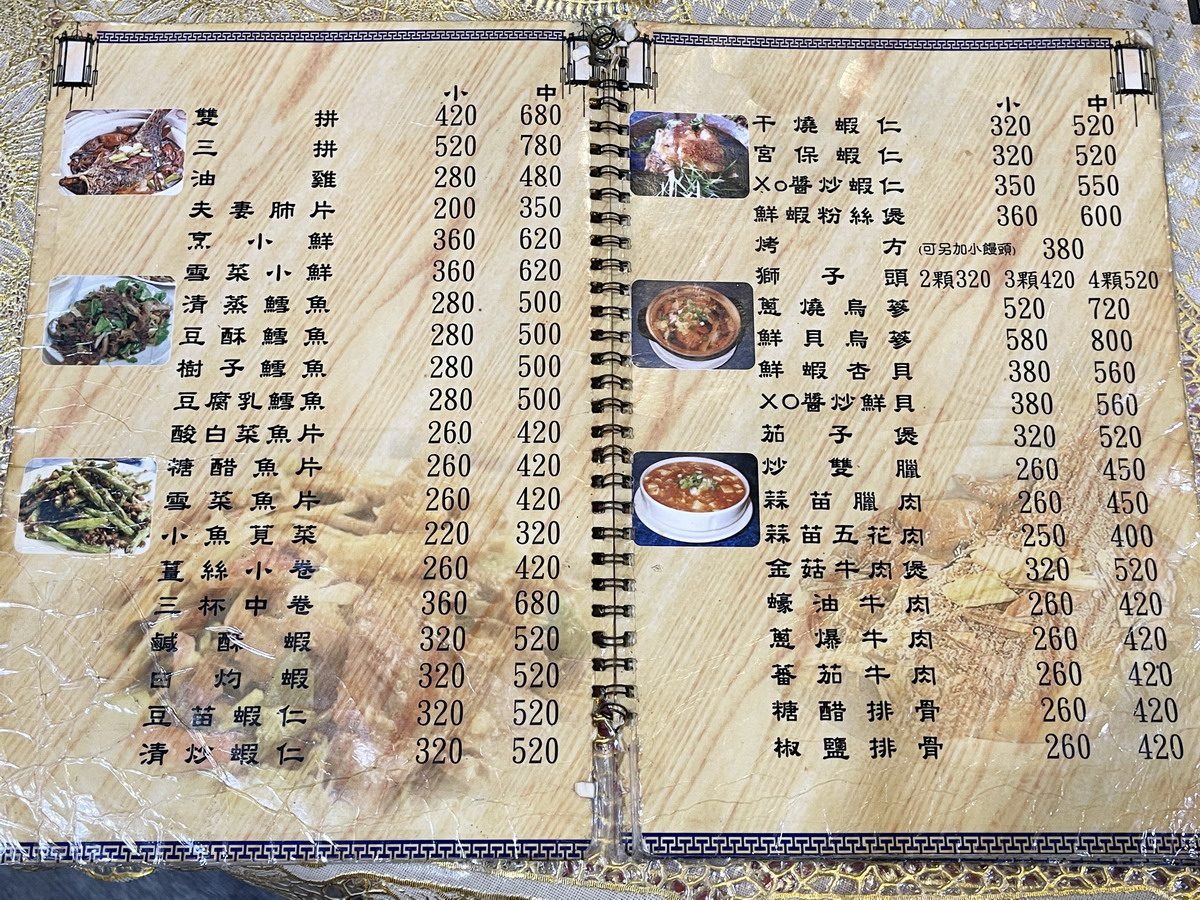 小 中
雙拼 420 680
三拼 520 780
油雞 280 480
夫妻肺片 200 350
烹小鮮 360 620
雪菜小鮮 360 620
清蒸鱈魚 280 500
豆酥鱈魚 280 500
樹子鱈魚 280 500
豆腐乳鱈魚 280 500
酸白菜魚片 260 420
糖醋魚片 260 420
雪菜魚片 260 420
小魚莧菜 220 320
薑絲小卷 260 420
三杯中卷 360 680
鹹酥蝦 320 520
白灼蝦 320 520
豆苗蝦仁 320 520
清炒蝦仁 320 520
小 中
干燒蝦仁 320 520
宮保蝦仁 320 520
XO醬炒蝦仁 350 550
鮮蝦粉絲煲 360 600
烤方 (可另加小饅頭) 380
獅子頭 2顆320 3顆420 4顆520
蔥燒烏蔘 520 720
鮮貝烏蔘 580 800
鮮蝦杏貝 380 560
XO醬炒鮮貝 380 560
茄子煲 320 520
炒雙臘 260 450
蒜苗臘肉 260 450
蒜苗五花肉 250 400
金菇牛肉煲 320 520
蠔油牛肉 260 420
蔥爆牛肉 260 420
蕃茄牛肉 260 420
糖醋排骨 260 420
椒鹽排骨 260 420